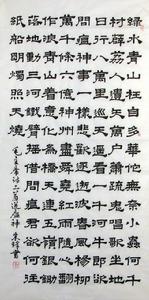 綠水青山枉自多華佗無奈小蟲何千
村薜荔人遺矢萬戶蕭疏鬼唱歌坐地
日行八萬里巡天遙看一千河牛郎欲
問瘟神事一樣悲歡逐逝波春風楊柳
萬千條六億神州盡舜堯紅雨隨心翻
作浪青山着意化為橋天連五嶺銀鋤
落地動三河鐵臂搖借問瘟君欲何往
紙船明燭照天燒
毛主席詩二首送瘟神 書